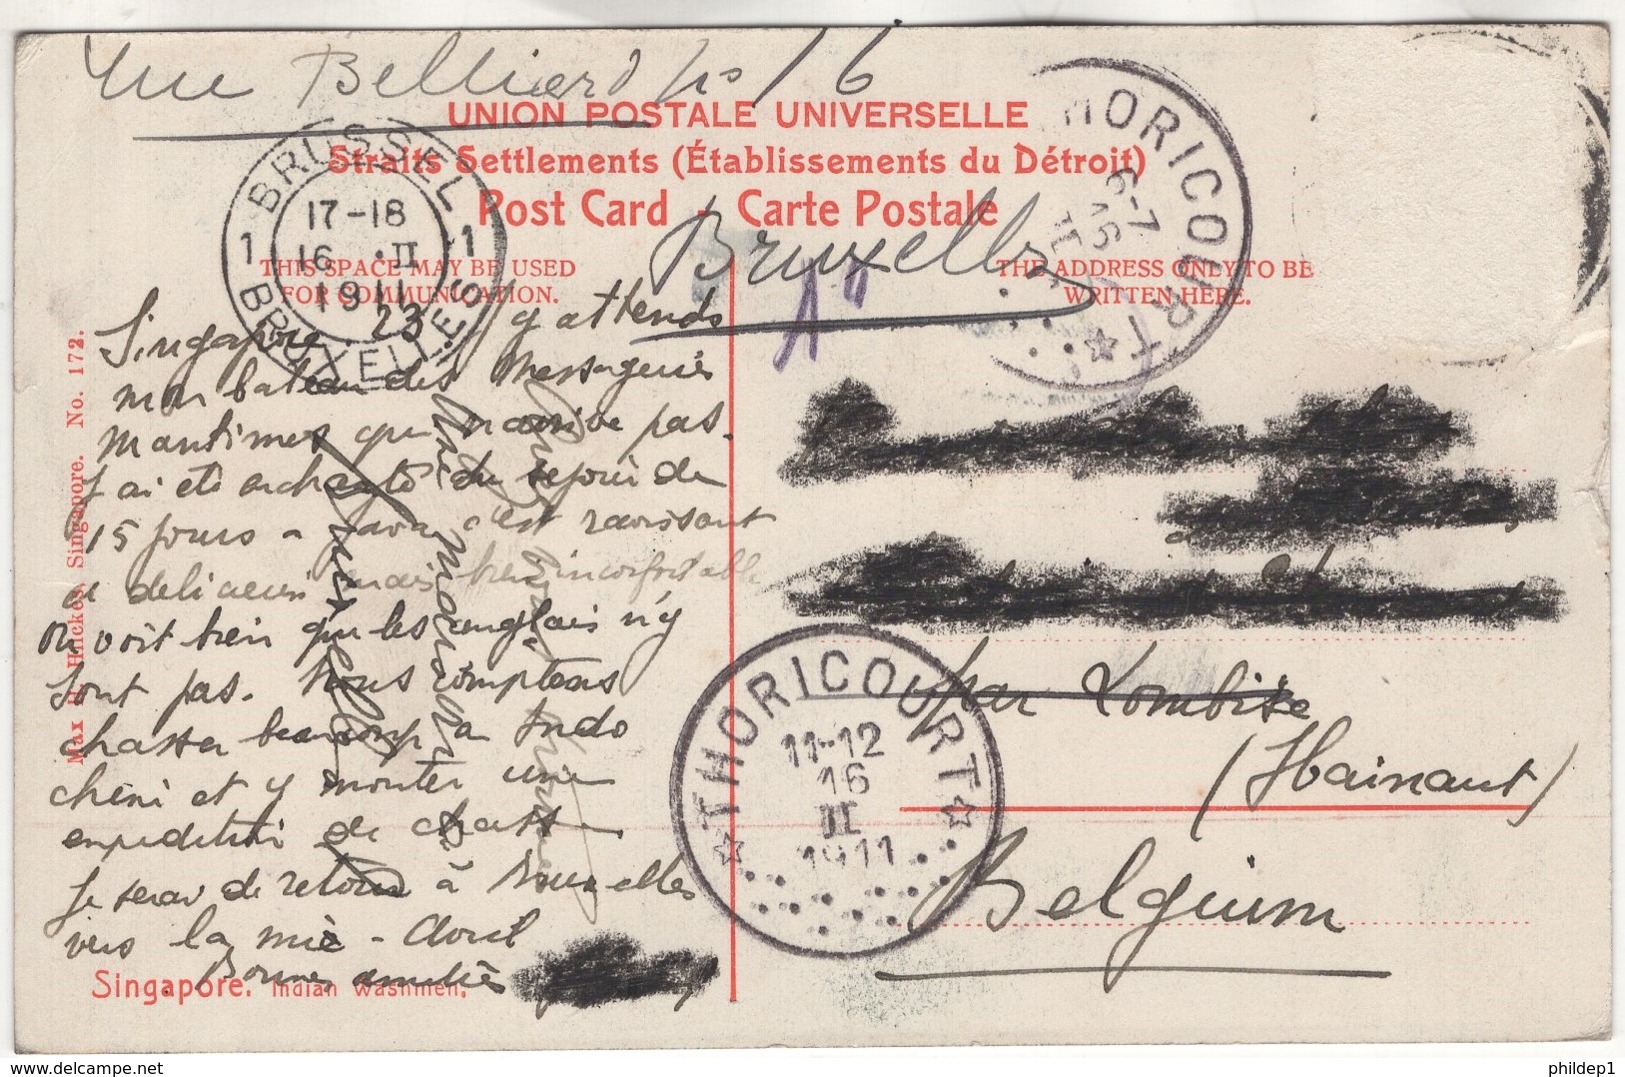 rue Belliard No 16
UNION POSTALE UNIVERSELLE
Straits Settlements (Établissements du Détroit)
Post Card - Carte Postale
Bruxelles
THIS SPACE MAY BE USED
FOR COMMUNICATION.
THE ADDRESS ONLY TO BE
WRITTEN HERE.
BRUSSEL
1 17-18 1
16 · II
1911
BRUXELLES
THORICOURT
6-7
16
II
Singapore 23 J'y attends
mon bateau des Messageries
maritimes qui n'arrive pas.
J'ai été enchanté du sejour de
15 jours a Java c'est ravissant
et delicieux mais bien inconfortable
on voit bien que les anglais n'y
sont pas. Nous comptons
chasser beaucoup en Indo
chine et y monter une
expedition de chasse
Je serai de retour à Bruxelles
vers la mi - Avril
Bonnes amitiés
par Lombise
(Hainaut)
Belgium
THORICOURT
11-12
16
II
1911
Max H. Hilckes, Singapore. No. 172.
Singapore. Indian washmen.
© www.delcampe.net
phildep1